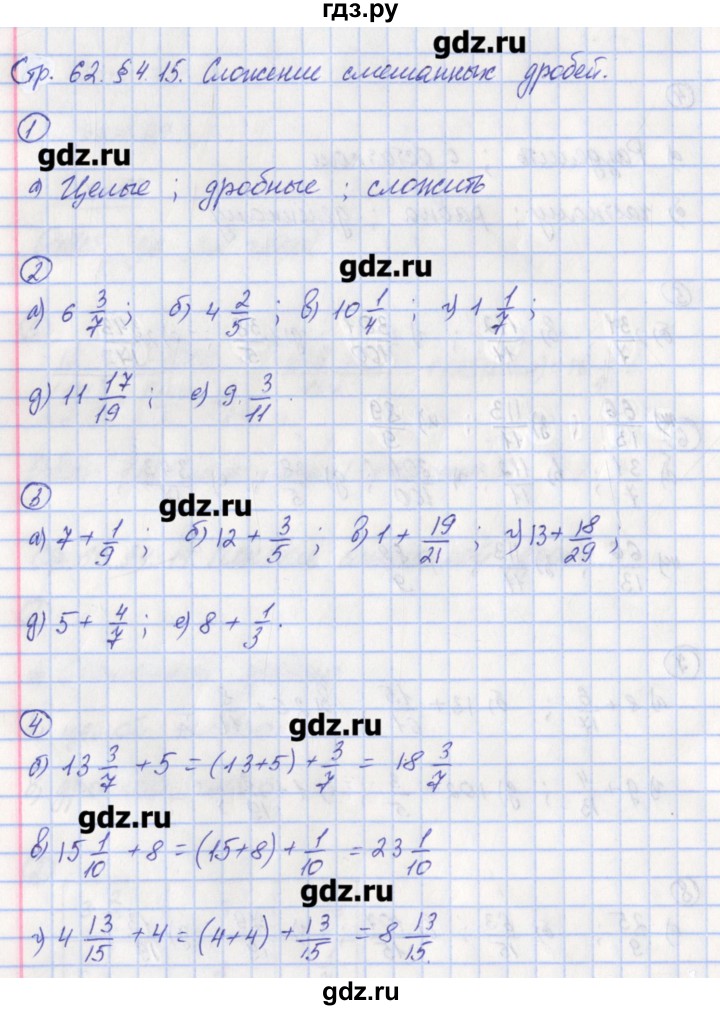 гдз.ру
gdz.ru
Стр. 62. § 4.15. Сложение смешанных дробей.
1
gdz.ru
а) Целые ; дробные ; сложить
2
gdz.ru
а) 6 3/7 ; б) 4 2/5 ; в) 10 1/4 ; г) 1 1/7 ;
д) 11 17/19 ; е) 9 3/11 .
3
gdz.ru
а) 7 + 1/9 ; б) 12 + 3/5 ; в) 1 + 19/21 ; г) 13 + 18/29 ;
д) 5 + 4/7 ; е) 8 + 1/3 .
4
gdz.ru
б) 13 3/7 + 5 = (13+5) + 3/7 = 18 3/7
gdz.ru
в) 15 1/10 + 8 = (15+8) + 1/10 = 23 1/10
gdz.ru
г) 4 13/15 + 4 = (4+4) + 13/15 = 8 13/15.
gdz.ru